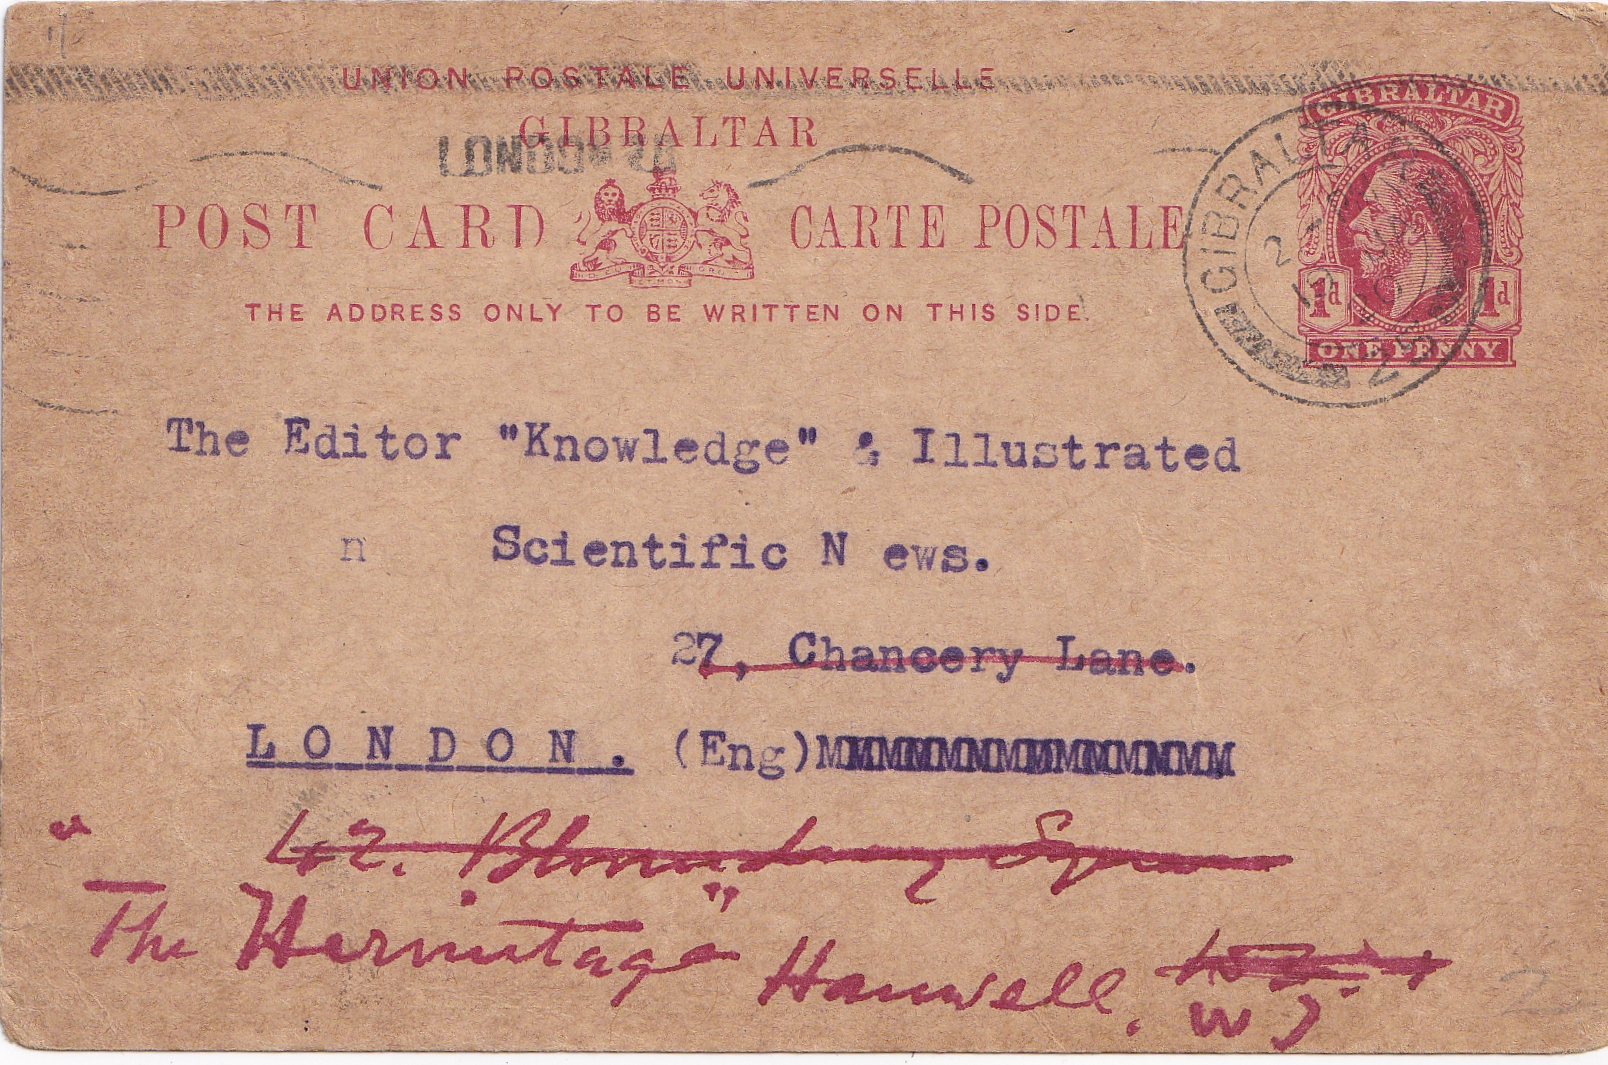 UNION POSTALE UNIVERSELLE
GIBRALTAR
GIBRALTAR
LONDON
POST CARD CARTE POSTALE
GIBRALTAR
1d 1d
ONE PENNY
THE ADDRESS ONLY TO BE WRITTEN ON THIS SIDE.
The Editor "Knowledge" & Illustrated
n Scientific N ews.
27, Chancery Lane.
L O N D O N . (Eng)
42. Bloomsbury Square
"The Hermitage" Hanwell.
W 7